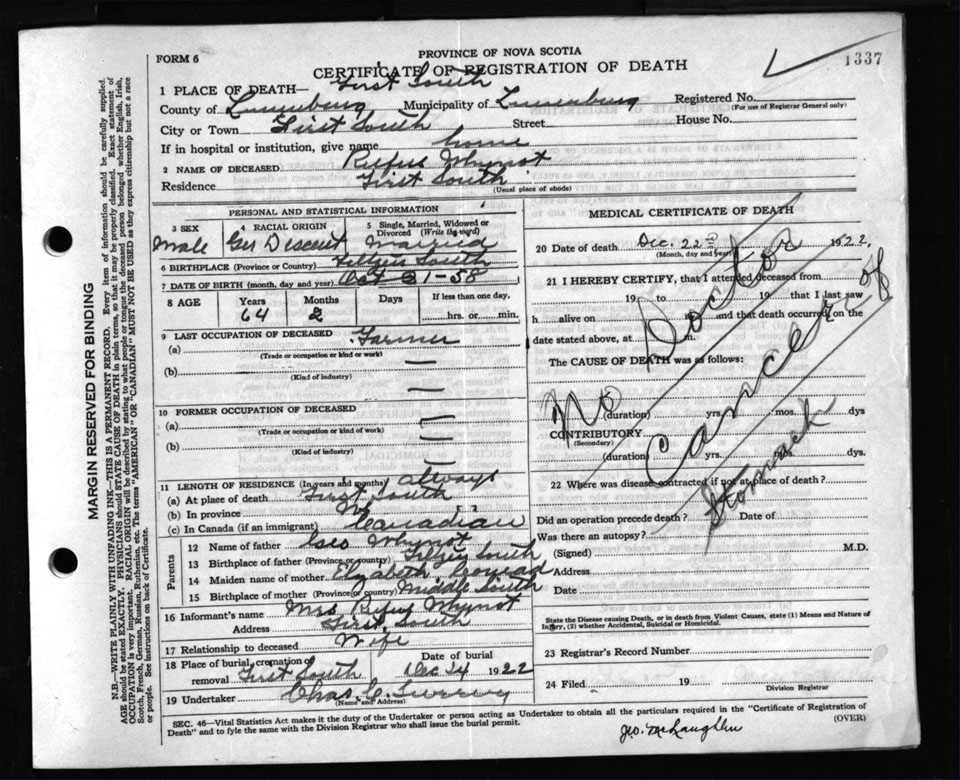 PROVINCE OF NOVA SCOTIA
FORM 6
1337
CERTIFICATE OF REGISTRATION OF DEATH
1 PLACE OF DEATH— First South
County of Lunenburg Municipality of Lunenburg Registered No.
(For use of Registrar General only)
City or Town First South Street House No.
If in hospital or institution, give name home
2 NAME OF DECEASED Rufus Whynot
Residence First South
(Usual place of abode)
PERSONAL AND STATISTICAL INFORMATION
3 SEX 4 RACIAL ORIGIN 5 Single, Married, Widowed or Divorced (Write the word)
Male Ger Descent Married
6 BIRTHPLACE (Province or Country) South
7 DATE OF BIRTH (month, day and year) Oct 21-58
8 AGE Years Months Days If less than one day.
64 2 hrs. or min.
9 LAST OCCUPATION OF DECEASED
(a) Farmer
(Trade or occupation or kind or work)
(b) —
(Kind of industry)
—
10 FORMER OCCUPATION OF DECEASED
(a) —
(Trade or occupation or kind or work)
(b) —
(Kind of industry)
—
11 LENGTH OF RESIDENCE (In years and months) always
(a) At place of death First South
(b) In province
(c) In Canada (if an immigrant) Canadian
Parents
12 Name of father Geo Whynot
13 Birthplace of father (Province or country) South
14 Maiden name of mother Elizabeth Conrad
15 Birthplace of mother (Province or country) Middle South
16 Informant's name Mrs Rufus Whynot
Address First South
17 Relationship to deceased Wife
18 Place of burial, cremation or removal First South Date of burial Dec 24 1922
19 Undertaker Chas. C.
(Name and Address)
MEDICAL CERTIFICATE OF DEATH
20 Date of death Dec. 22 1922
(Month, day and year)
21 I HEREBY CERTIFY, that I attended deceased from
19 to 19 that I last saw
h alive on and that death occurred on the
date stated above, at m.
The CAUSE OF DEATH was as follows:
No Doctor
cancer of
Stomach
(duration) yrs. mos. dys
CONTRIBUTORY
(Secondary)
(duration) yrs. mos. dys.
22 Where was disease contracted if not at place of death?
Did an operation precede death? Date of
Was there an autopsy?
(Signed) M.D.
Address
Date
State the Disease causing Death, or in death from Violent Causes, state (1) Means and Nature of
Injury, (2) whether Accidental, Suicidal or Homicidal.
23 Registrar's Record Number
24 Filed 19
Division Registrar
SEC. 46—Vital Statistics Act makes it the duty of the Undertaker or person acting as Undertaker to obtain all the particulars required in the "Certificate of Registration of
Death" and to fyle the same with the Division Registrar who shall issue the burial permit.
(OVER)
Jo. McLaughlin
MARGIN RESERVED FOR BINDING
N.B.—WRITE PLAINLY WITH UNFADING INK—THIS IS A PERMANENT RECORD. Every item of information should be carefully supplied.
AGE should be stated EXACTLY. PHYSICIANS should STATE CAUSE OF DEATH in plain terms, so that it may be properly classified. Exact statement of
OCCUPATION is very important. RACIAL ORIGIN will be described by stating to what people or tongue the deceased person belonged whether English, Irish,
Scotch, French, German, Russian, Ruthenian, etc. The terms "AMERICAN" or "CANADIAN" MUST NOT BE USED as they express citizenship but not a race
or people. See instructions on back of Certificate.